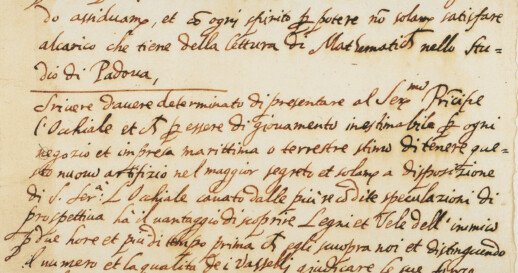 do assiduam.te, et cõ ogni spirito p potere nõ solam.te satisfare
alcarico che tiene della lettura di Mathematich.e nello Stu-
dio di Padova,
Scrivere dauere determinato di presentare al Ser.mo Principe
l'Ochiale et p essere di giouamento inestimabile p ogni
negozio et impresa marittima o terrestre stimo di tenere que-
sto nuouo artifizio nel maggior segreto et solam.te a disposizione
di S. Ser.tà L'Ochiale cauato dalle più recõdite speculazioni di
prospettiua ha il uantaggio di scoprire Legni et Vele dell'inimico
p due hore et più di tempo prima ch egli scuopra noi et distinguendo
il numero et la qualità dei Vasselli giudicare le sue forze